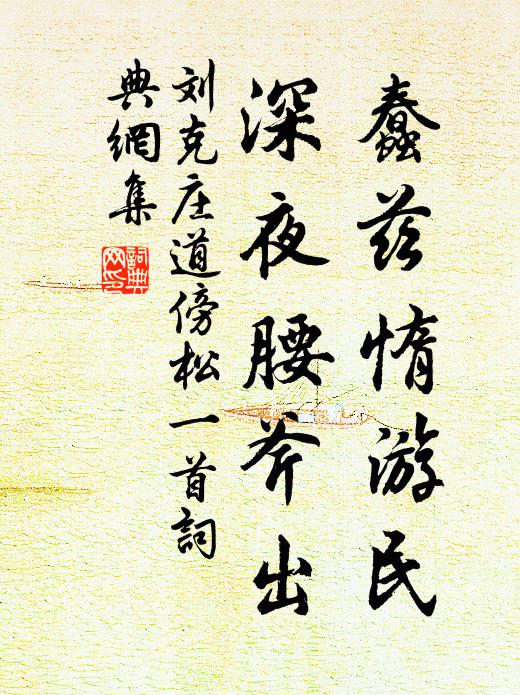 蠢兹惰游民
深夜腰斧出
刘克庄道傍松一首詞
典網集
詞典网印